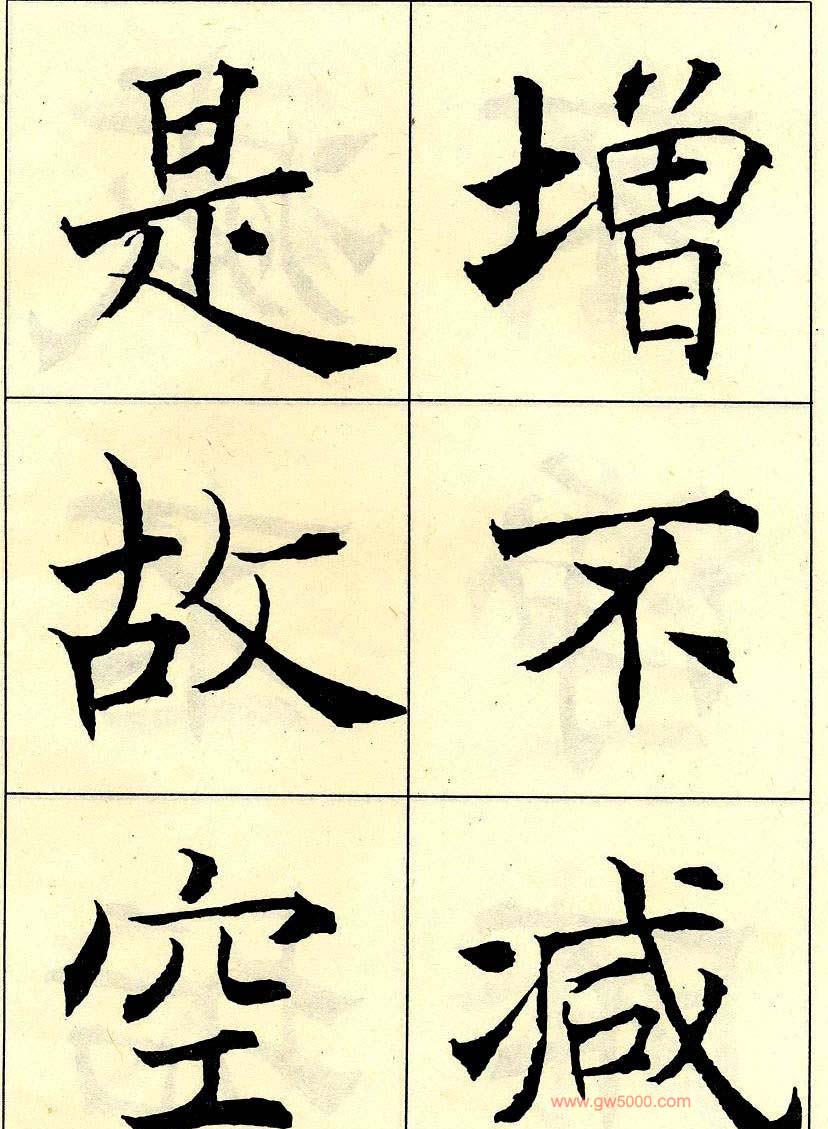 增不减
是故空
www.gw5000.com